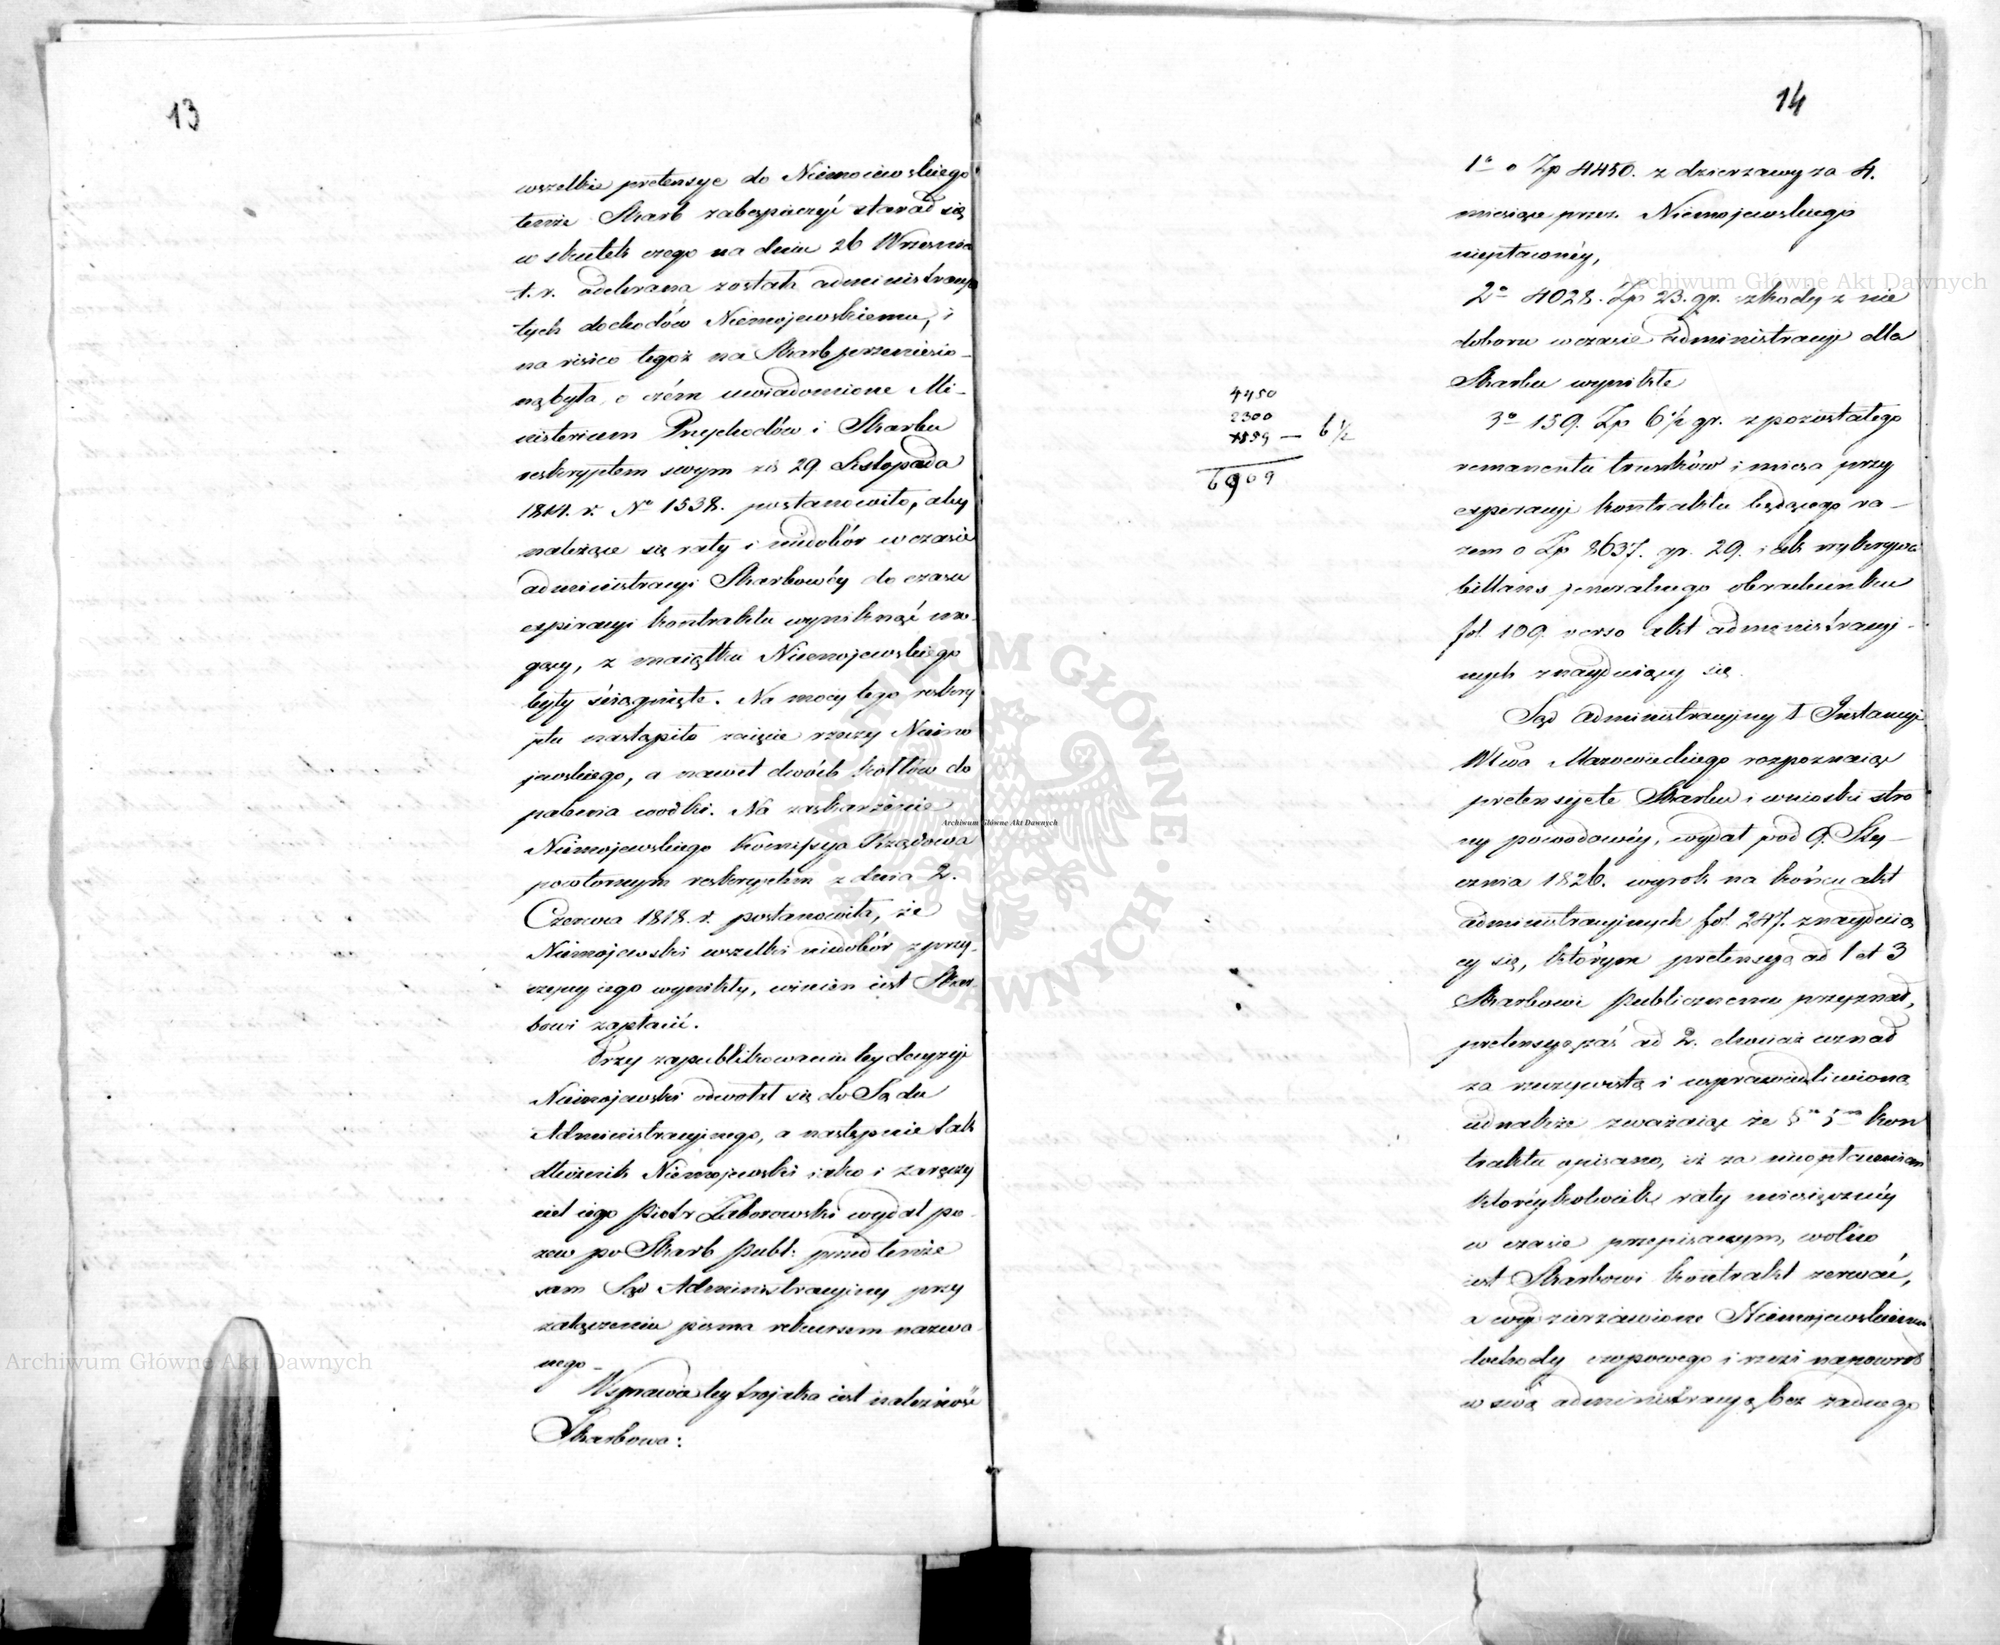 13
wszelkie pretensye do Niemoiewskiego
tenże Skarb zabespieczyć starał się
w skutek czego na dniu 26 Wrzesnia
t. r. odebrana została administracya
tych dochodów Niemojewskiemu, i
na risico tegoż na Skarb przeniesio-
ną była, o czém uwiadomione Mi-
nisterium Przychodów i Skarbu
reskryptem swym z d. 29. Listopada
1814. r. No 1538. postanowiło, aby
należące się raty i niedobór w czasie
administracyi Skarbowéy do czasu
expiracyi kontraktu wyniknąć mo-
gący, z maiątku Niemojewskiego
były ściągnięte. Na mocy tego reskry
ptu nastąpiło zaięcie rzeczy Niemo
jewskiego, a nawet dwóch kotłów do
palenia wódki. Na zaskarżenie
Niemojewskiego Kommissya Rządowa
powtórnym reskryptem z dnia 2.
Czerwca 1818. r. postanowiła, że
Niemojewski wszelki niedobór z przy-
czyny iego wynikły, winien iest Skar-
bowi zapłacić.
Przy zapublikowaniu tey decyzyi
Niemojewski odwołał się do Sądu
Administracyjnego, a następnie tak
dłużnik Niemojewski iako i zaręczy
ciel iego Piotr Zaborowski wydał po-
zew po Skarb Publ: przed tenże
sam Sąd Administracyjny przy
załączeniu pisma rekursem nazwa
nego_
W sprawie tey trojaka iest należność
Skarbowa:
14
1o o Zp 4450. z dzierzawy za 4.
miesiące przez Niemojewskiego
niepłaconéy,
2o 4028. Zp 23. gr. szkody z nie
doboru w czasie administracyi dla
Skarbu wynikłe
3o 159. Zp 6 1/2 gr. z pozostałego
remanentu trunków i miesa przy
expiracyi kontraktu będącego ra-
zem o Zp 8637. gr. 29. iak wykrywa
billans jeneralnego obrachunku
fol. 109. verso akt administracyj-
nych znayduiący się.
Sąd administracyjny I Instancyi
Wtwa Mazowieckiego rozpoznaiąc
pretensye te Skarbu i wnioski stro
ny powodowéy, wydał pod 9. Sty-
cznia 1826. wyrok na końcu akt
administracyjnych fol. 247. znayduią
cy się, którym pretensyą ad 1 et 3
Skarbowi Publicznemu przyznał,
pretensyą zaś ad 2. chociaż uznał
za rzeczywistą i usprawiedliwioną
iednakże zważaiąc że §m 5m kon
traktu opisano, iż za nieopłaceniem
któréykolwiek raty miesięcznéy
w czasie przepisanym, wolno
iest Skarbowi kontrakt zerwać,
a wydzierżawione Niemojewskiemu
dochody czopowego i rzezi napowrót
w swą administracyą bez żadnego
4450
2300
159 — 6 1/2
6909